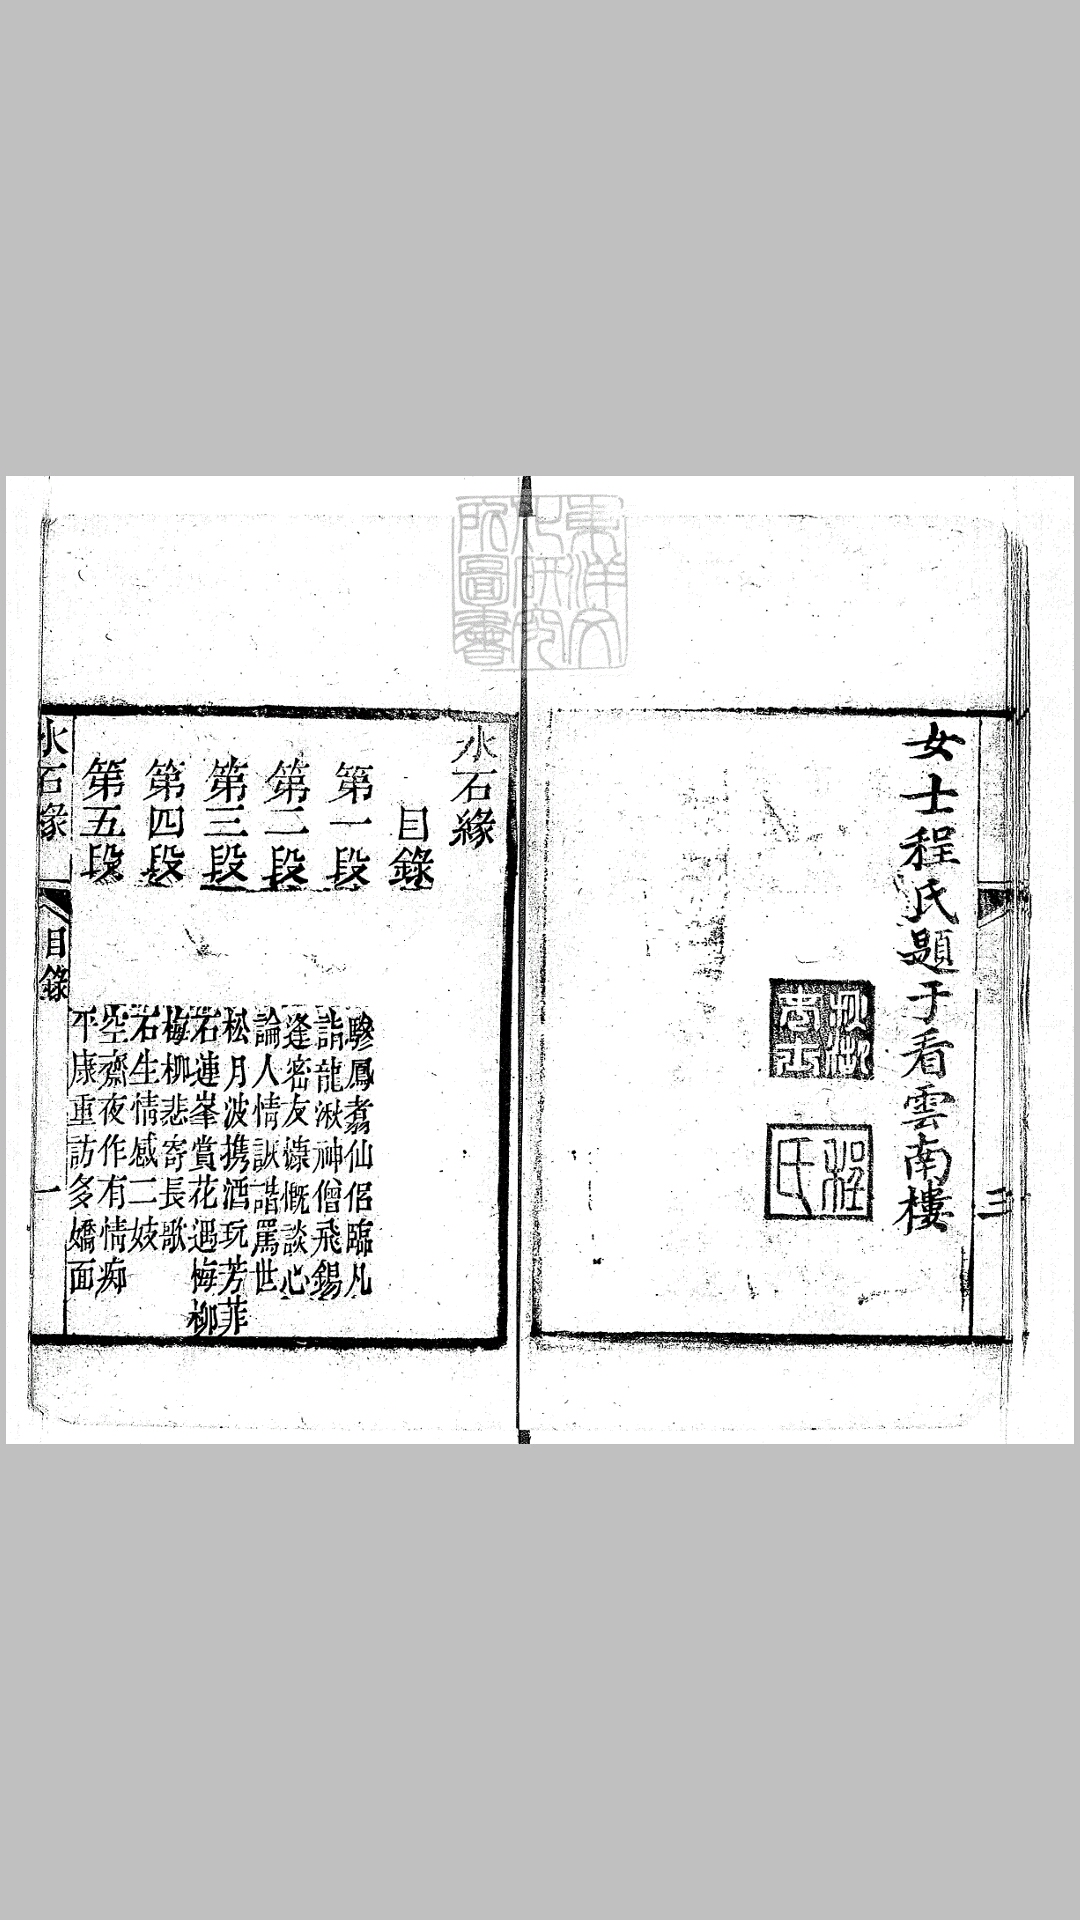 女士程氏題于看雲南樓
三
程氏
東洋文
化研究
所圖書
水石緣
目錄
第一段
驂鳳翥仙侶臨凡
詣龍湫神僧飛錫
第二段
逢密友慷慨談心
論人情詼諧罵世
第三段
松月波携酒玩芳菲
石蓮峯賞花遇梅柳
第四段
梅柳悲寄長歌
石生情感二妓
第五段
空齋夜作有情痴
平康重訪多嬌面
水石緣
目錄
一